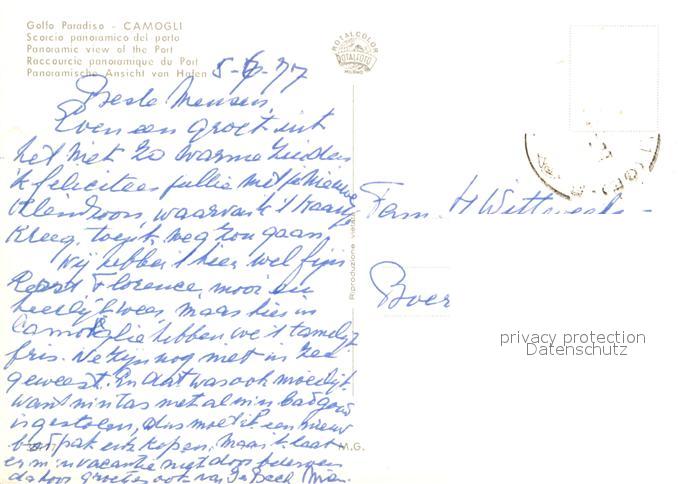 Golfo Paradiso - CAMOGLI
Scorcio panoramico del porto
Panoramic view of the Port
Raccourcie panoramique du Port
Panoramische Ansicht von Hafen
5-6-77
ROTALCOLOR
ROTALFOTO
MILANO
Beste Mensen,
Even een groet uit
het niet zo warme Zuiden
'k feliciteer jullie met je nieuwe
kleinzoon, waarvan ik 't kaartje
kreeg, toen ik weg zou gaan.
Wij hebben 't hier wel fijn
Florence, mooi en
heerlijk weer, maar hier in
Camoglie hebben we 't tamelijk
fris. We zijn nog niet in zee
geweest. En dat was ook moeilijk
want mijn tas met al mijn badgoed
is gestolen, dus moet ik een nieuw
badpak enz kopen. Maar ik laat
er m'n vacantie niet door bederven
de hartelijke groeten ook van
Fam. H Witteveen -
Boer
Riproduzione vietata
M.G.
privacy protection
Datenschutz